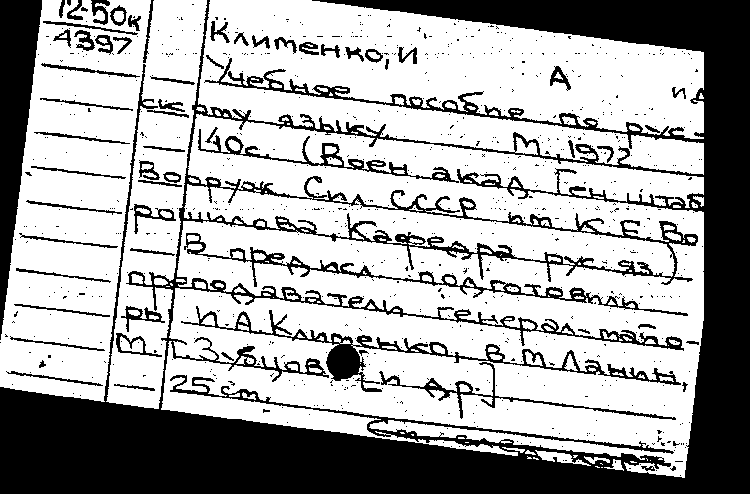 12-50к
4397
Клименко, И
А и д
Учебное пособие по рус-
скому языку. М., 1972
140с. (Воен акад Ген штаб
Вооруж. Сил СССР им К.Е. Во
рошилова. Кафедра рус. яз.)
В предисл подготовили
преподаватели генерал-майо-
ры И.А. Клименко, В.М. Ланин,
М.Т. Зубцов [и др.].
25 см.
См. след. карт.